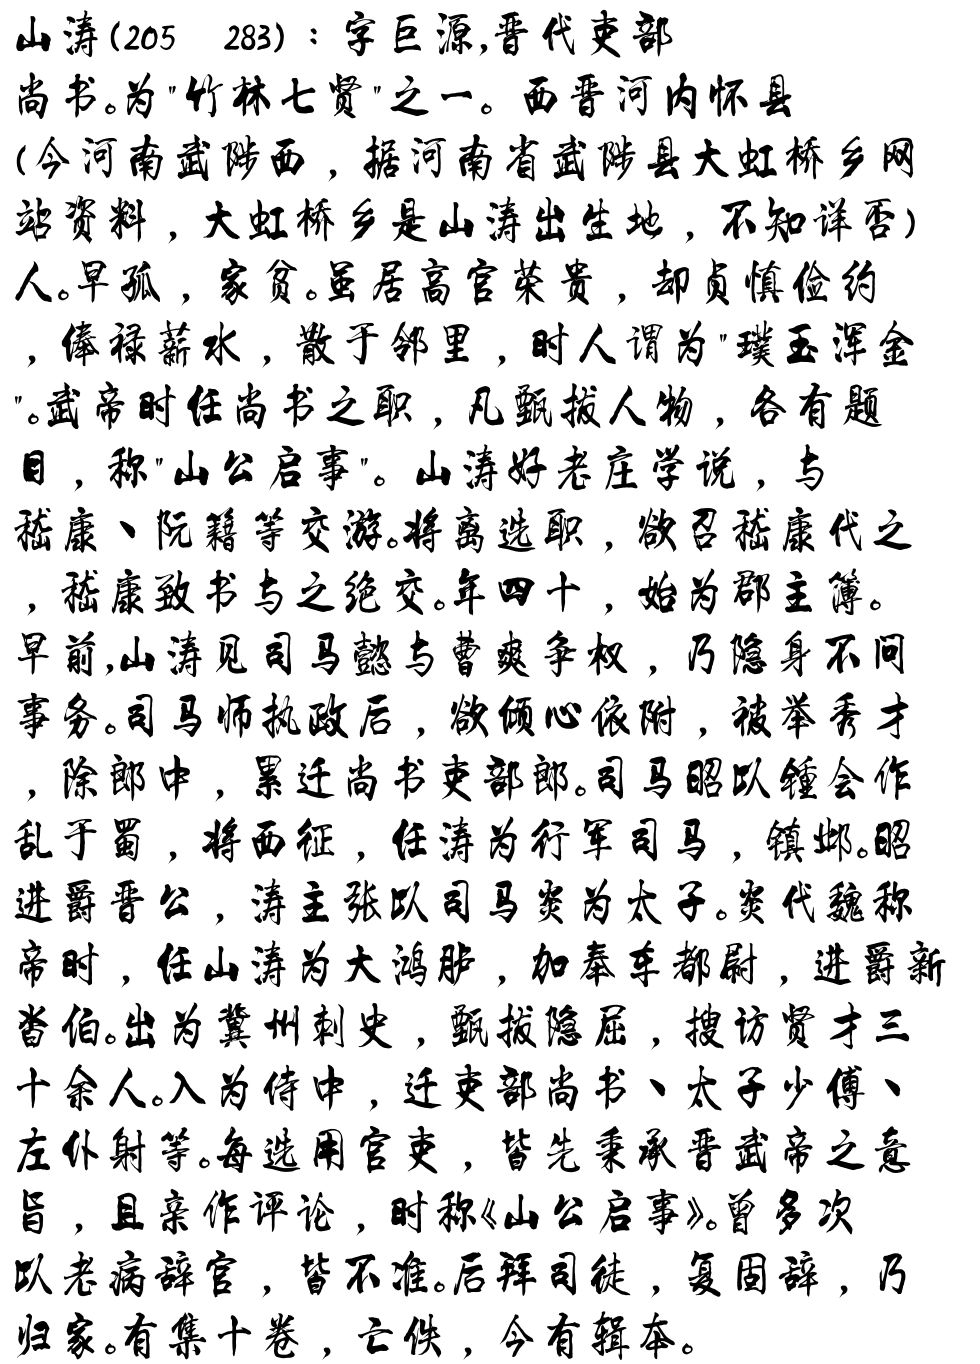 山涛(205　283)：字巨源,晋代吏部
尚书。为"竹林七贤"之一。西晋河内怀县
(今河南武陟西，据河南省武陟县大虹桥乡网
站资料，大虹桥乡是山涛出生地，不知详否)
人。早孤，家贫。虽居高官荣贵，却贞慎俭约
，俸禄薪水，散于邻里，时人谓为"璞玉浑金
"。武帝时任尚书之职，凡甄拔人物，各有题
目，称"山公启事"。山涛好老庄学说，与
嵇康丶阮籍等交游。将离选职，欲召嵇康代之
，嵇康致书与之绝交。年四十，始为郡主簿。
早前,山涛见司马懿与曹爽争权，乃隐身不问
事务。司马师执政后，欲倾心依附，被举秀才
，除郎中，累迁尚书吏部郎。司马昭以锺会作
乱于蜀，将西征，任涛为行军司马，镇邺。昭
进爵晋公，涛主张以司马炎为太子。炎代魏称
帝时，任山涛为大鸿胪，加奉车都尉，进爵新
沓伯。出为冀州刺史，甄拔隐屈，搜访贤才三
十余人。入为侍中，迁吏部尚书丶太子少傅丶
左仆射等。每选用官吏，皆先秉承晋武帝之意
旨，且亲作评论，时称《山公启事》。曾多次
以老病辞官，皆不准。后拜司徒，复固辞，乃
归家。有集十卷，亡佚，今有辑本。